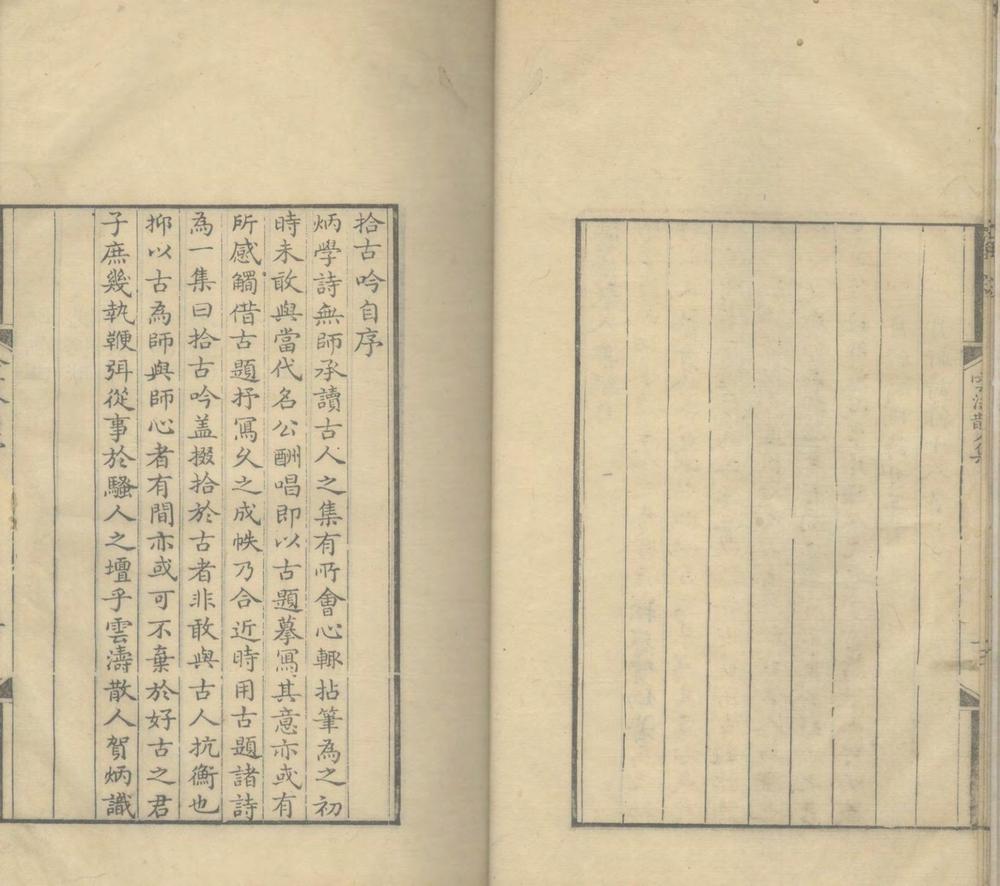 雲濤散人集
拾古吟自序
炳學詩無師承讀古人之集有所會心輙拈筆為之初
時未敢與當代名公酬唱即以古題摹寫其意亦或有
所感觸借古題抒寫久之成帙乃合近時用古題諸詩
為一集曰拾古吟盖掇拾於古者非敢與古人抗衡也
抑以古為師與師心者有間亦或可不棄於好古之君
子庶幾執鞭弭從事於騷人之壇乎雲濤散人賀炳識